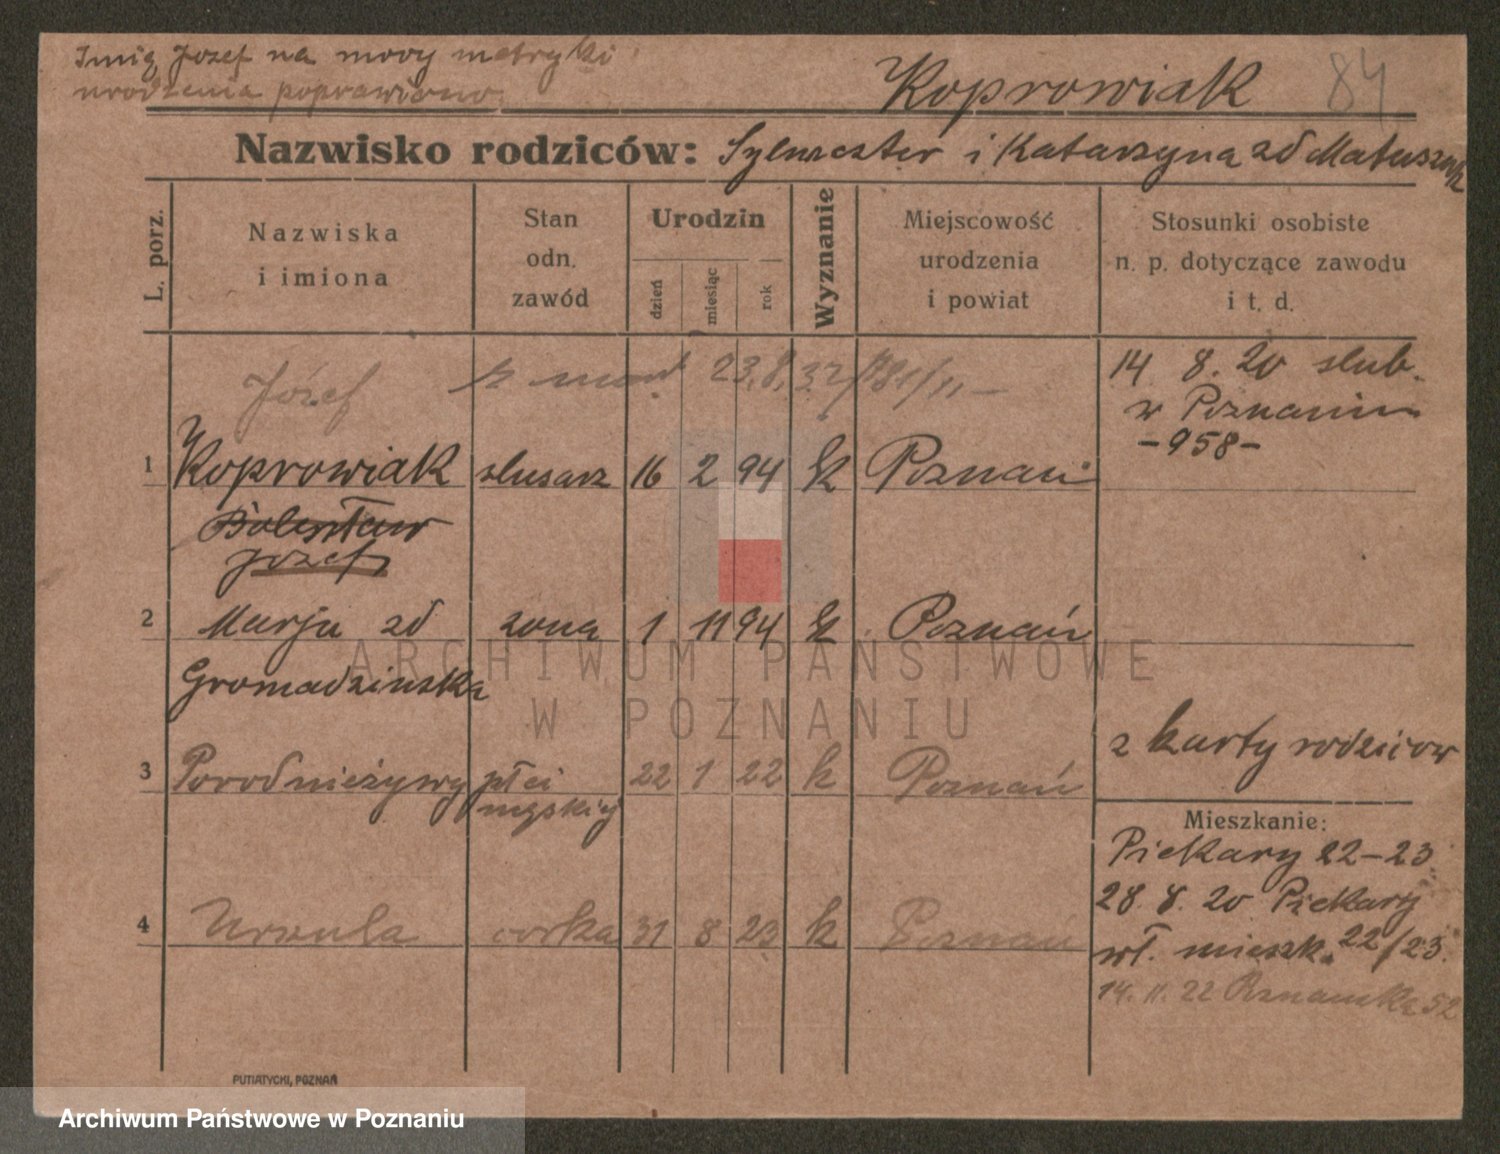 Imię Jozef na mocy metryki
urodzenia poprawiono.
Koprowiak 84
Nazwisko rodziców: Sylwester i Katarzyna zd Matuszak
L. porz.
Nazwiska
i imiona
Stan
odn.
zawód
Urodzin
dzień
miesiąc
rok
Wyznanie
Miejscowość
urodzenia
i powiat
Stosunki osobiste
n. p. dotyczące zawodu
i t. d.
Józef 23.8.32
14 8. 20 slub.
w Poznaniu
-958-
1 Koprowiak slusarz 16 2 94 k Poznań
Bolesław
Jozef
2 Marja zd zona 1 11 94 k Poznań
Gromadzinska
3 Porod nieżywy płci 22 1 22 k Poznań
męskiej
z karty rodzicow
4 Urszula corka 31 8 23 k Poznań
Mieszkanie:
Piekary 22-23.
28. 8. 20 Piekary
wł. mieszk. 22/23.
14. 11. 22 Poznanska 52
PUTIATYCKI, POZNAŃ
ARCHIWUM PAŃSTWOWE
W POZNANIU
Archiwum Państwowe w Poznaniu